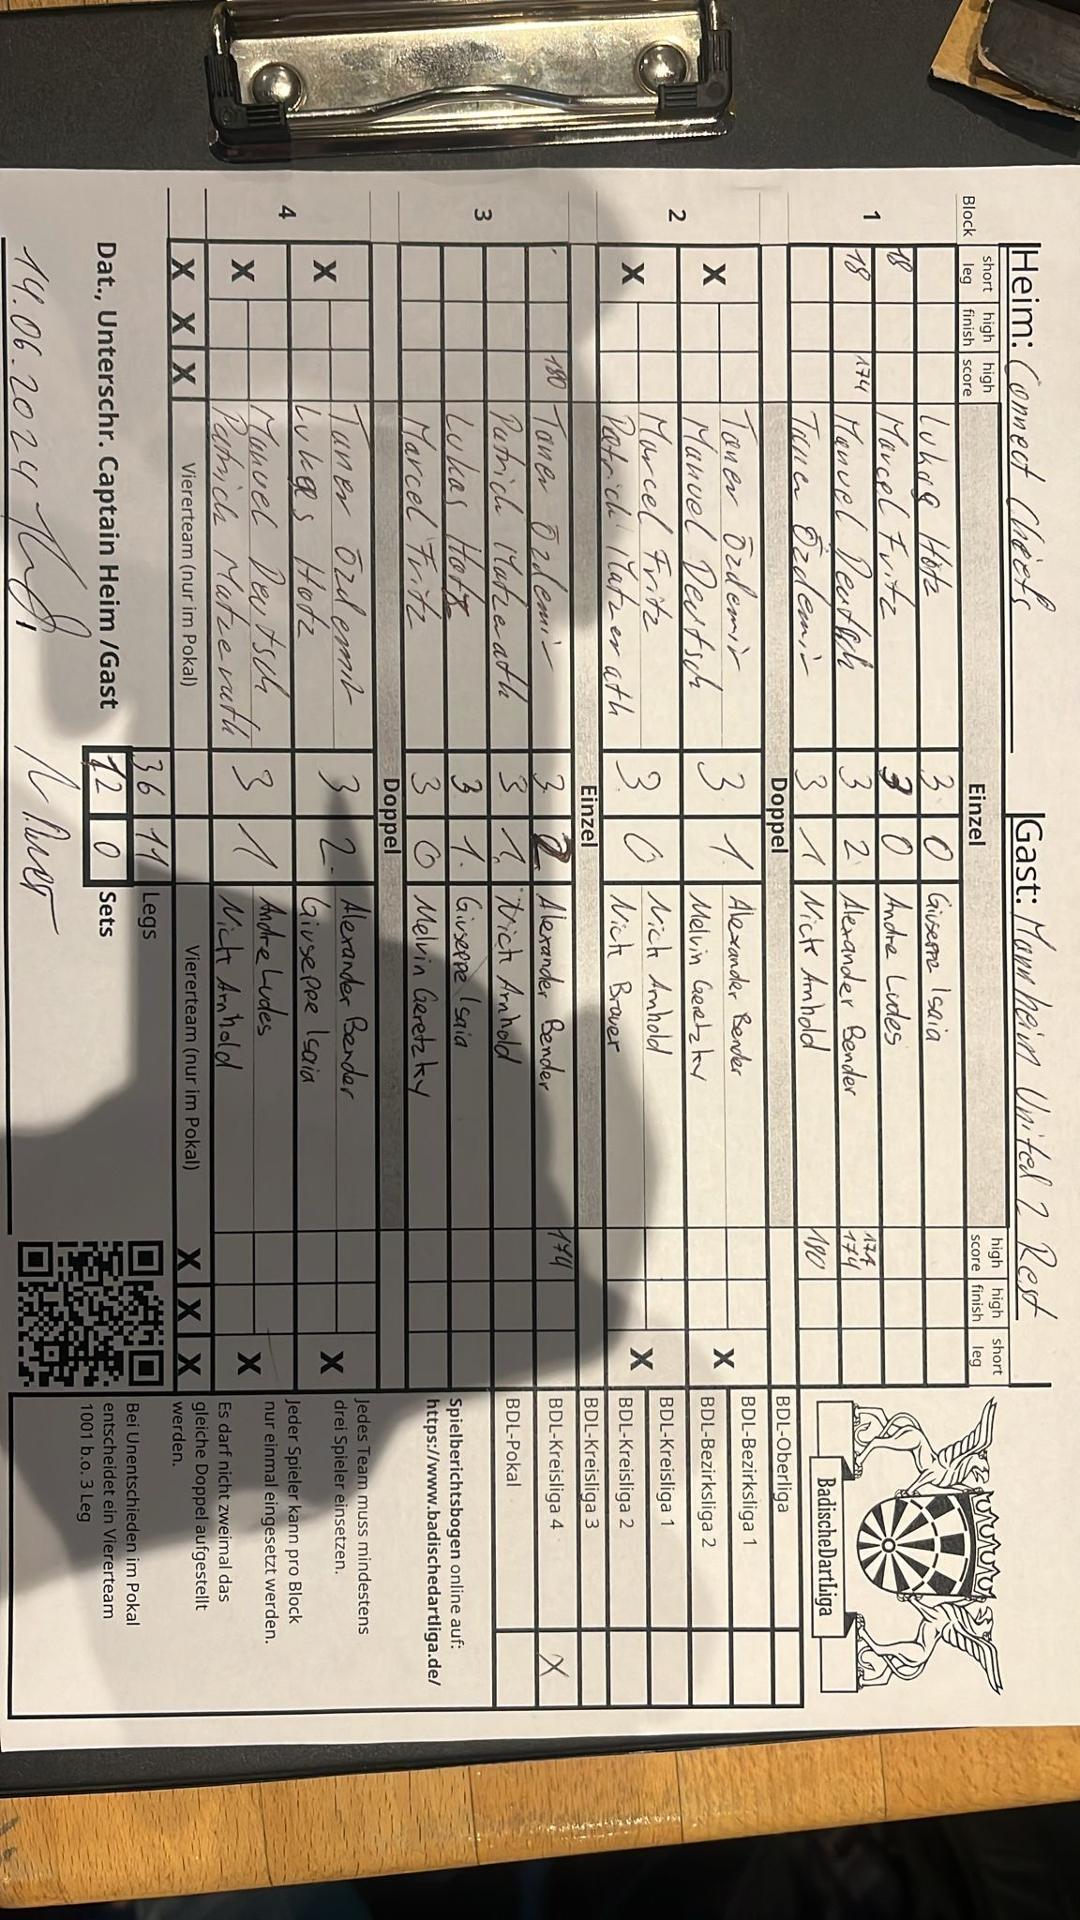 Heim: Connect Chiefs Gast: Mannheim United 2 Rest
Block short leg high finish high score Einzel high score high finish short leg
1
Lukas Hotz 3 0 Giuseppe Isaia
18 Marcel Fritz 3 0 Andre Ludes
18 174 Manuel Deutsch 3 2 Alexander Bender 174 174
Taner Özdemir 3 1 Nick Arnhold 180
Doppel
2
X Taner Özdemir 3 1 Alexander Bender X
Manuel Deutsch Melvin Geretzky
X Marcel Fritz 3 0 Nick Arnhold X
Patrick Matzerath Nick Brauer
Einzel
3
180 Taner Özdemir 3 2 Alexander Bender 174
Patrick Matzerath 3 1 Nick Arnhold
Lukas Hotz 3 1 Giuseppe Isaia
Marcel Fritz 3 0 Melvin Geretzky
Doppel
4
X Taner Özdemir 3 2 Alexander Bender X
Lukas Hotz Giuseppe Isaia
X Manuel Deutsch 3 1 Andre Ludes X
Patrick Matzerath Nick Arnhold
X X X Viererteam (nur im Pokal) Viererteam (nur im Pokal) X X X
36 11 Legs
Dat., Unterschr. Captain Heim /Gast 12 0 Sets
14.06.2024
BadischeDartLiga
BDL-Oberliga
BDL-Bezirksliga 1
BDL-Bezirksliga 2
BDL-Kreisliga 1
BDL-Kreisliga 2
BDL-Kreisliga 3
BDL-Kreisliga 4 X
BDL-Pokal
Spielberichtsbogen online auf:
https://www.badischedartliga.de/
Jedes Team muss mindestens
drei Spieler einsetzen.
Jeder Spieler kann pro Block
nur einmal eingesetzt werden.
Es darf nicht zweimal das
gleiche Doppel aufgestellt
werden.
Bei Unentschieden im Pokal
entscheidet ein Viererteam
1001 b.o. 3 Leg